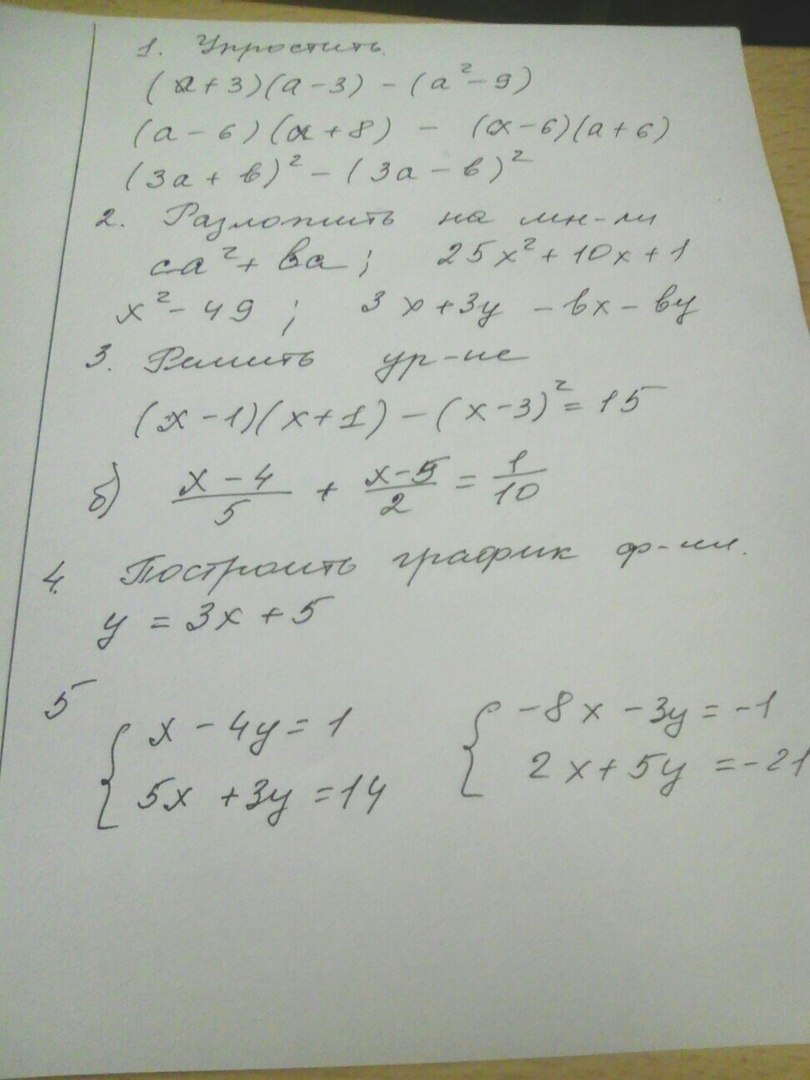 1. Упростить.
(a+3)(a-3) - (a²-9)
(a-6)(a+8) - (a-6)(a+6)
(3a+b)² - (3a-b)²
2. Разложить на мн-ли
ca²+ba; 25x²+10x+1
x²-49; 3x+3y-bx-by
3. Решить ур-ие
(x-1)(x+1)-(x-3)²=15
б) (x-4)/5 + (x-5)/2 = 1/10
4. Построить график ф-ии.
y = 3x+5
5
{ x-4y=1
5x+3y=14
{ -8x-3y=-1
2x+5y=-21